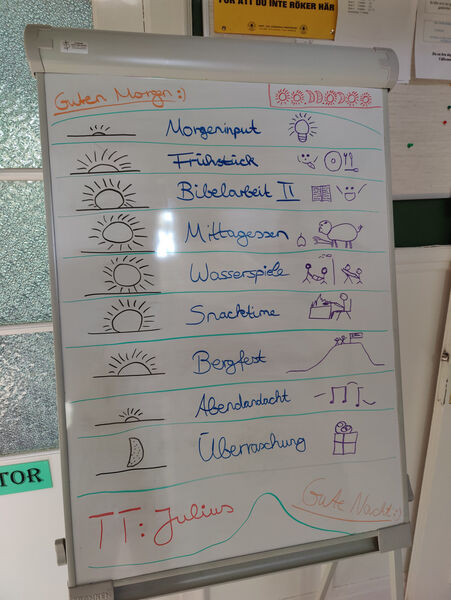 FÖR ATT DU INTE RÖKER HÄR
Guten Morgen :)
Morgeninput
Frühstück
Bibelarbeit II
Mittagessen
Wasserspiele
Snacktime
Bergfest
Abendandacht
Überraschung
TOR
TT: Julius
Gute Nacht :)